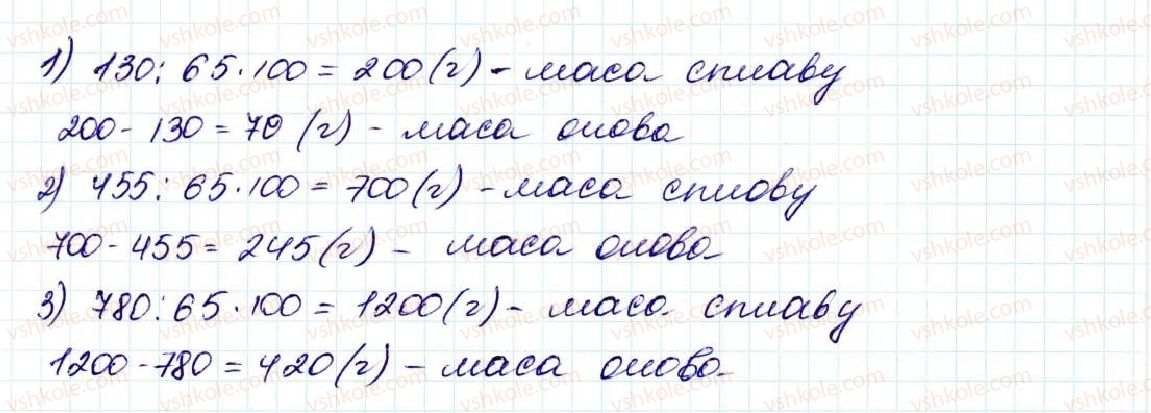 1) 130 : 65 · 100 = 200 (г) - маса сплаву
200 - 130 = 70 (г) - маса олова
2) 455 : 65 · 100 = 700 (г) - маса спłову
700 - 455 = 245 (г) - маса олова
3) 780 : 65 · 100 = 1200 (г) - маса сплаву
1200 - 780 = 420 (г) - маса олова
vshkole.com